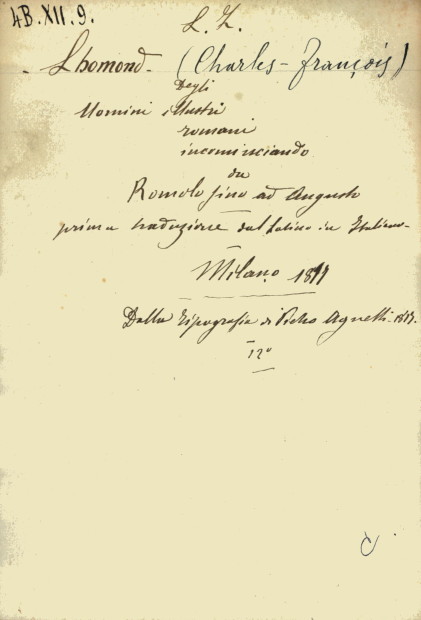 4B.XII.9.
L. Z.
Lhomond - (Charles-François)
Degli
Uomini illustri
romani
incominciando
da
Romolo fino ad Augusto
prima traduzione dal latino in Italiano -
Milano
Dalla Tipografia di Pietro Agnelli -
12º